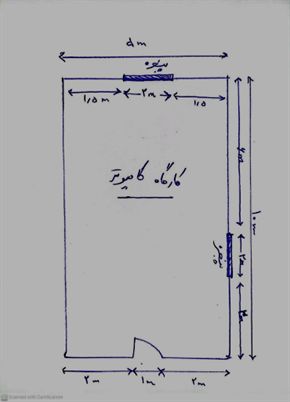 ۵m
پنجره
۱٫۵ m
۲m
۱٫۵
کارگاه کامپیوتر
۱۰m
پنجره
۲m
۲m
۱m
۲m
Scanned with CamScanner